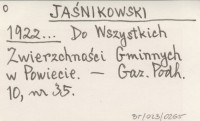 O
JAŚNIKOWSKI
1922... Do Wszystkich
Zwierzchności Gminnych
w Powiecie. — Gaz. Podh.
10, nr 35.